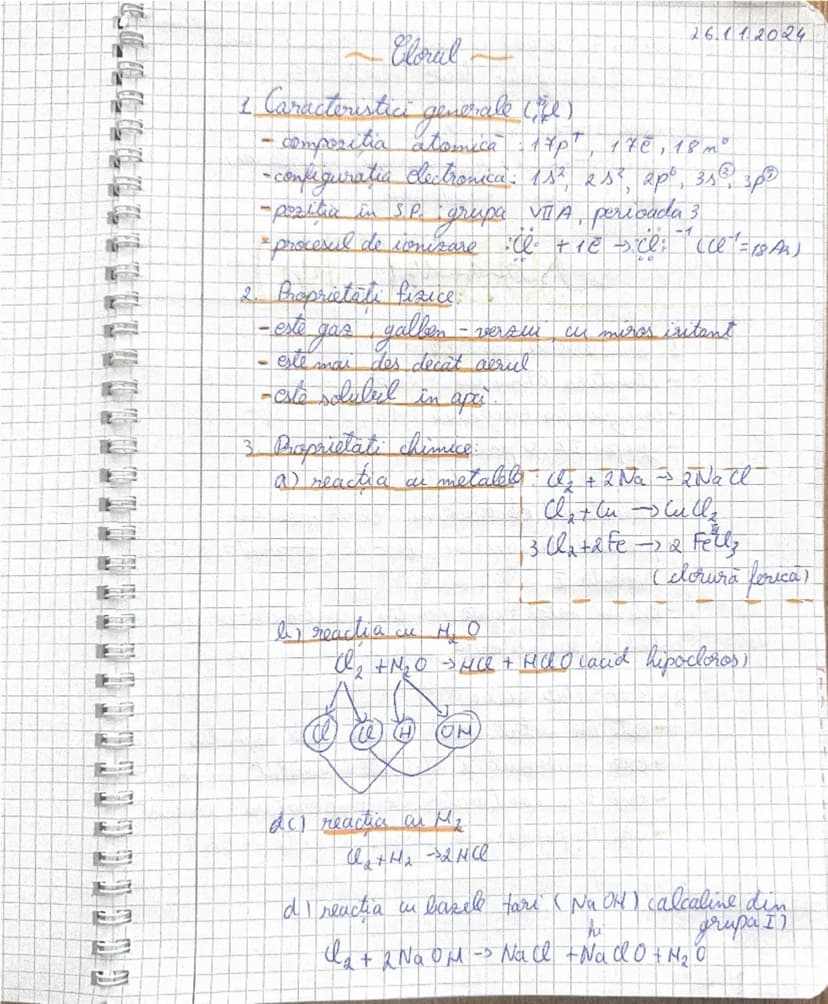 26.11.2024
~ Clorul ~
1. Caracteristici generale (³⁵₁₇Cl)
- compoziția atomică : 17p⁺, 17ē, 18n⁰
- configurația electronică: 1s², 2s², 2p⁶, 3s②, 3p⑤
- poziția în S.P. : grupa VII A, perioada 3
- procesul de ionizare :Cl· + 1ē → :Cl:⁻¹ (Cl⁻¹ = 18Ar)
2. Proprietăți fizice:
- este gaz, galben - verzui, cu miros iritant
- este mai des decât aerul
- este solubil în apă.
3. Proprietăți chimice:
a) reacția cu metalele : Cl₂ + 2Na → 2NaCl
Cl₂ + Cu → CuCl₂
3Cl₂ + 2Fe → 2 FeᴵᴵᴵCl₃
(clorură ferică)
b) reacția cu H₂O
Cl₂ + H₂O → HCl + HClO (acid hipocloros)
Cl Cl H OH
c) reacția cu H₂
Cl₂ + H₂ → 2HCl
d) reacția cu bazele tari (NaOH) (alcaline din
grupa I)
Cl₂ + 2NaOH → NaCl + NaClO + H₂O